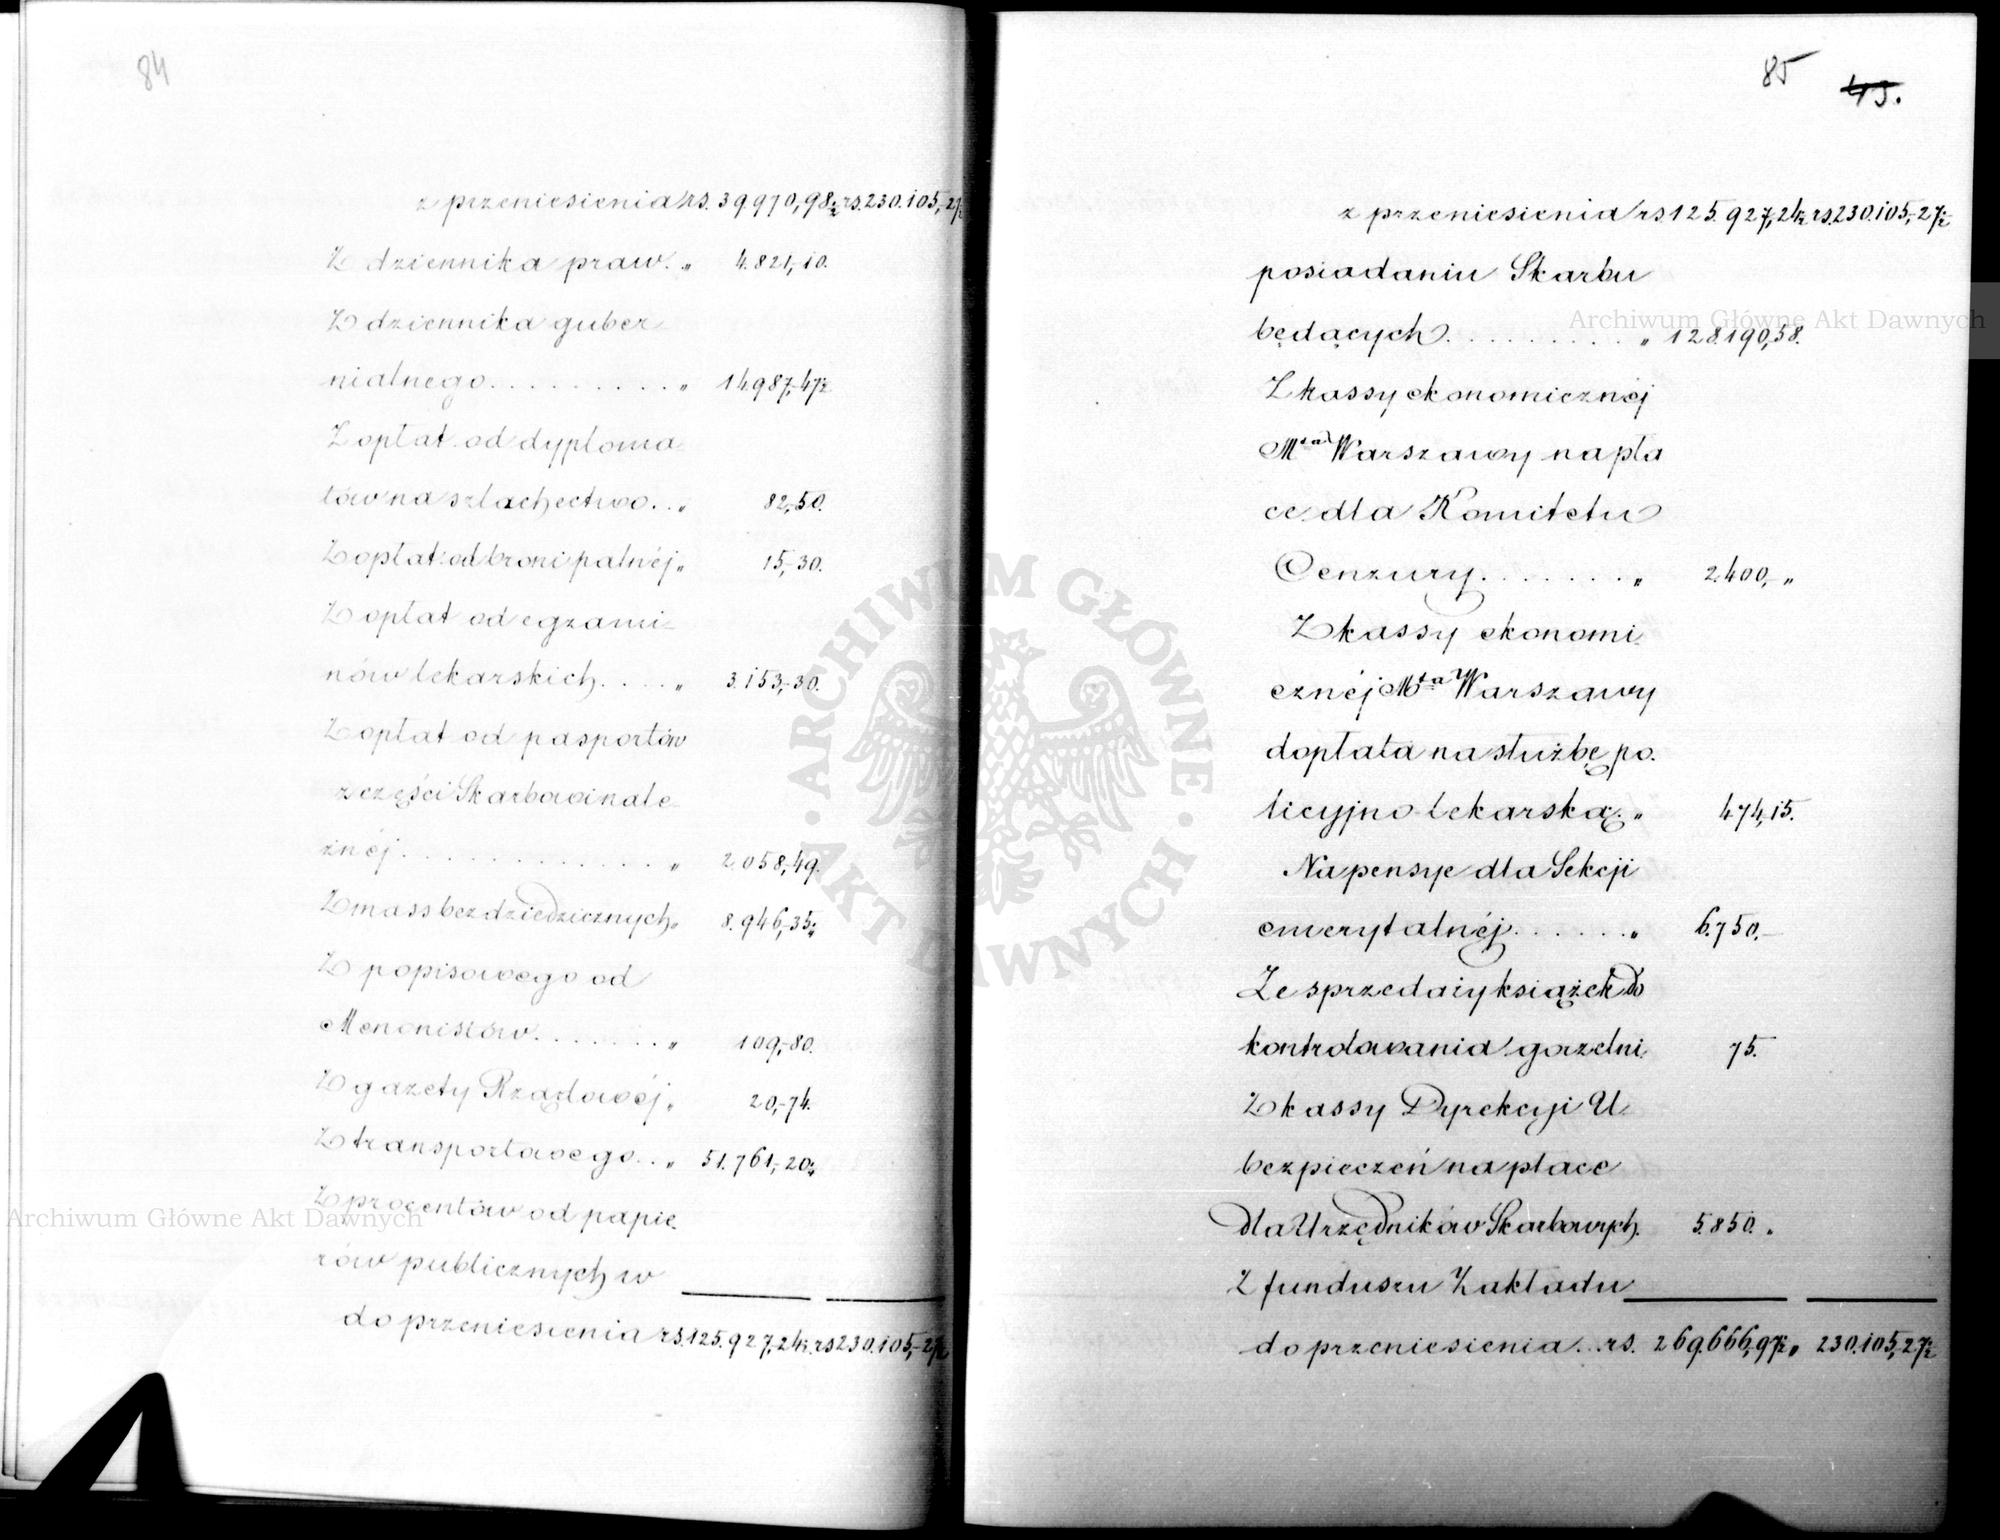 84
z przeniesienia rs. 39.970,98½ rs. 230.105,-27½
Z dziennika praw. „ 4.821,-10.
Z dziennika guber-
nialnego......... „ 14.987,-47½
Z opłat od dyploma-
tów na szlachectwo.. „ 82,-50.
Z opłat od broni palnéj „ 15,-30.
Z opłat od egzami-
nów lekarskich.... „ 3.153,-30.
Z opłat od pasportów
z części Skarbowi nale-
żnéj............. „ 2.058,-49.
Z mass bezdziedzicznych „ 8.946,-35½
Z popisowego od
Menonistów....... „ 109,-80.
Z gazety Rządowéj „ 20,-74.
Z transportowego.. „ 51.761,-20½
Z procentów od papie-
rów publicznych w
do przeniesienia rs. 125.927,-24½ rs. 230.105,-27½
85
43.
z przeniesienia rs. 125.927,24½ rs. 230.105,-27½
posiadaniu Skarbu
będących......... „ 128.190,58.
Z kassy ekonomicznéj
Mta Warszawy na pła
ce dla Komitetu
Cenzury....... „ 2.400,- „
Z kassy ekonomi-
cznéj Mta Warszawy
dopłata na służbę po-
licyjno-lekarską. „ 474,15.
Na pensye dla Sekcji
emerytalnéj...... „ 6.750.-
Ze sprzedaży książek do
kontrolowania gorzelni 75.
Z kassy Dyrekcyi U-
bezpieczeń na płace
dla Urzędników Skarbowych. 5.850. „
Z funduszu Zakładu
do przeniesienia... rs. 269.666,97½ „ 230.105,-27½
ARCHIWUM GŁÓWNE · AKT DAWNYCH ·
Archiwum Główne Akt Dawnych
Archiwum Główne Akt Dawnych